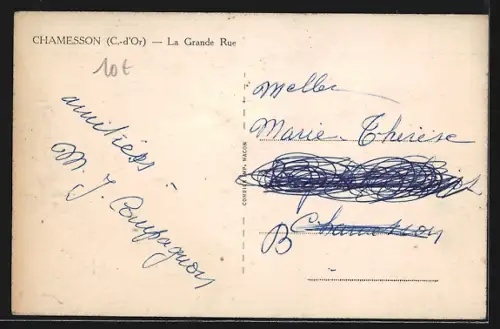 CHAMESSON (C.-d'Or) — La Grande Rue
10t
amitiés
M. J. Compagnon
COMBIER IMP. MACON
Melle
Marie-Thérèse
B Chamesson